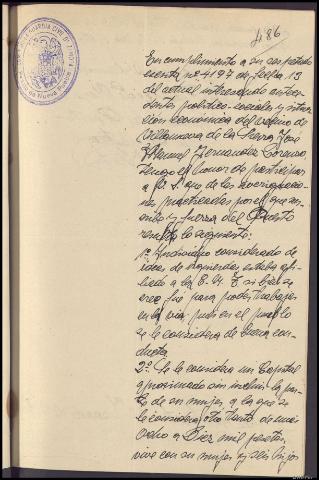 486
En cumplimiento a su respetado
escrito nº 4197 de fecha 13
del actual interesando antece-
dentes político-sociales y situa-
ción económica del vecino de
Villanueva de la Sierra José
Manuel Hernandez Lorenzo,
tengo el honor de participar
a V. S. que de las averiguacio-
nes practicadas por el que sus-
cribe y fuerza del Puesto
resulta lo siguiente:
1º Individuo considerado de
ideas de izquierdas estaba afi-
liado a la C. N. T. si bien se
cree fué para poder trabajar
en la via pues en el pueblo
se le considera de buena con-
ducta
2º Se le considera un Capital
aproximado sin incluir la par-
te de su mujer a la que se
le considera otro tanto de unas
Ocho a Diez mil pesetas,
vive con su mujer y seis hijos